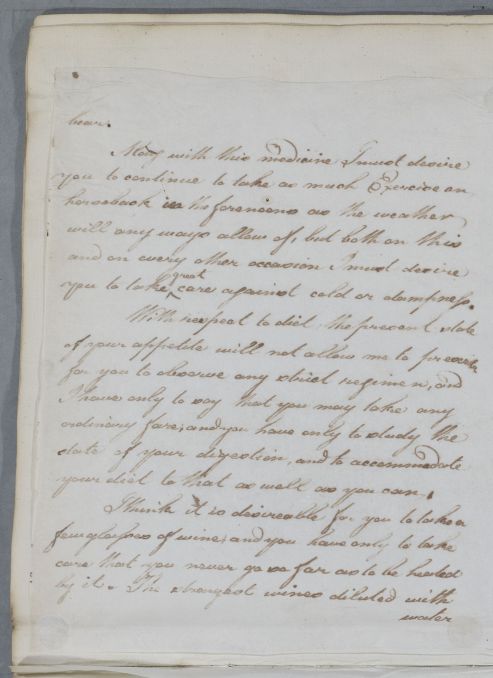 bear.
Along with this medicine I must desire
you to continue to take as much Exercise on
horseback in the forenoons as the weather
will any ways allow of, but both on this
and on every other occasion I must desire
you to take great care against cold or dampness.
With respect to diet, the present state
of your appetite will not allow me to prescribe
for you to observe any strict regimen, and
I have only to say that you may take any
ordinary fare; and you have only to study the
state of your digestion, and to accommodate
your diet to that as well as you can.
I think it is desireable for you to take a
few glasses of wine; and you have only to take
care that you never go so far as to be heated
by it. The strongest wines diluted with
water